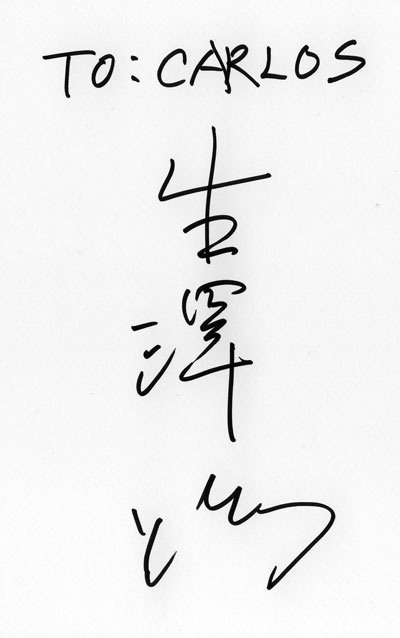 TO: CARLOS
生澤